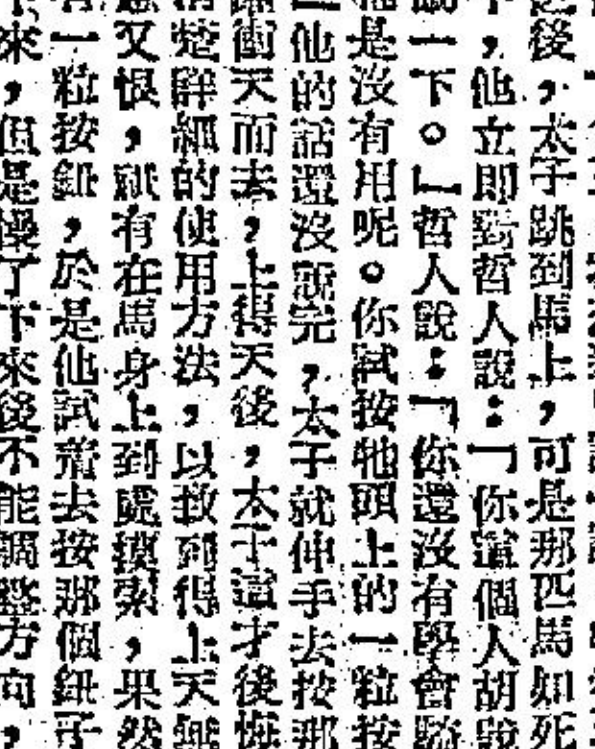 後，太子跳到馬上，可是那匹馬如死
，他立即對哲人說：「你這個人胡說
一下。」哲人說：「你還沒有學會騎
是沒有用呢。你試按牠頭上的一粒按
他的話還沒說完，太子就伸手去按那
衝天而去，上得天後，太子這才後悔
楚詳細的使用方法，以致到得上天無
又恨，祇有在馬身上到處摸索，果然
一粒按鈕，於是他試着去按那個鈕子
來，但是慢了下來後不能調整方向，